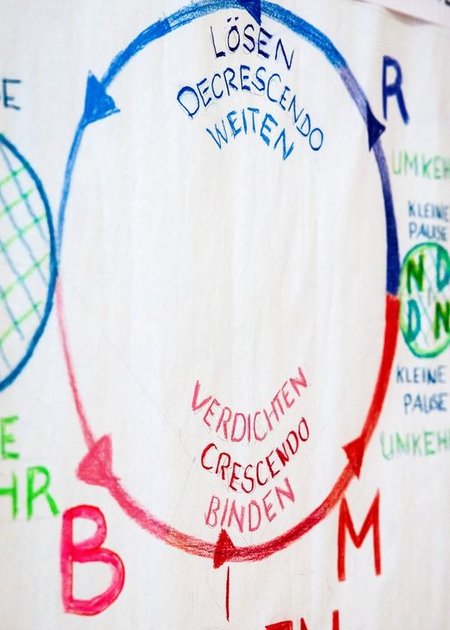 LÖSEN
DECRESCENDO
WEITEN
R
KLEINE
PAUSE
N D
D N
KLEINE
PAUSE
VERDICHTEN
CRESCENDO
BINDEN
HR
M
B
I